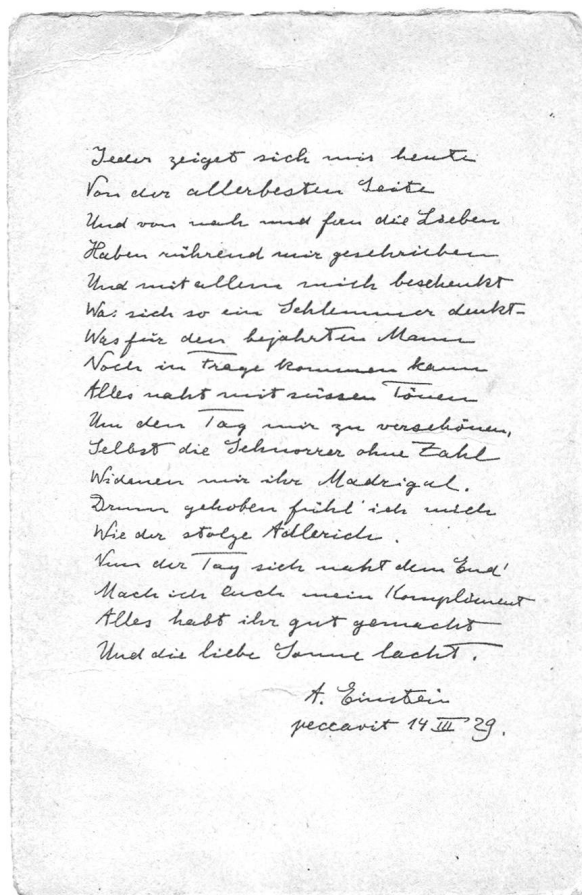 Jeder zeiget sich mir heute
Von der allerbesten Seite
Und von nah und fern die Lieben
Haben rührend mir geschrieben
Und mit allem mich beschenkt
Was sich so ein Schlemmer denkt –
Was für den bejahrten Mann
Noch in Frage kommen kann
Alles naht mit süssen Tönen
Um den Tag mir zu verschönen,
Selbst die Schnorrer ohne Zahl
Widmen mir ihr Madrigal.
Drum gehoben fühl' ich mich
Wie der stolze Adlerich.
Nun der Tag sich naht dem End'
Mach ich Euch mein Kompliment
Alles habt ihr gut gemacht
Und die liebe Sonne lacht.
A. Einstein
peccavit 14 III 29.